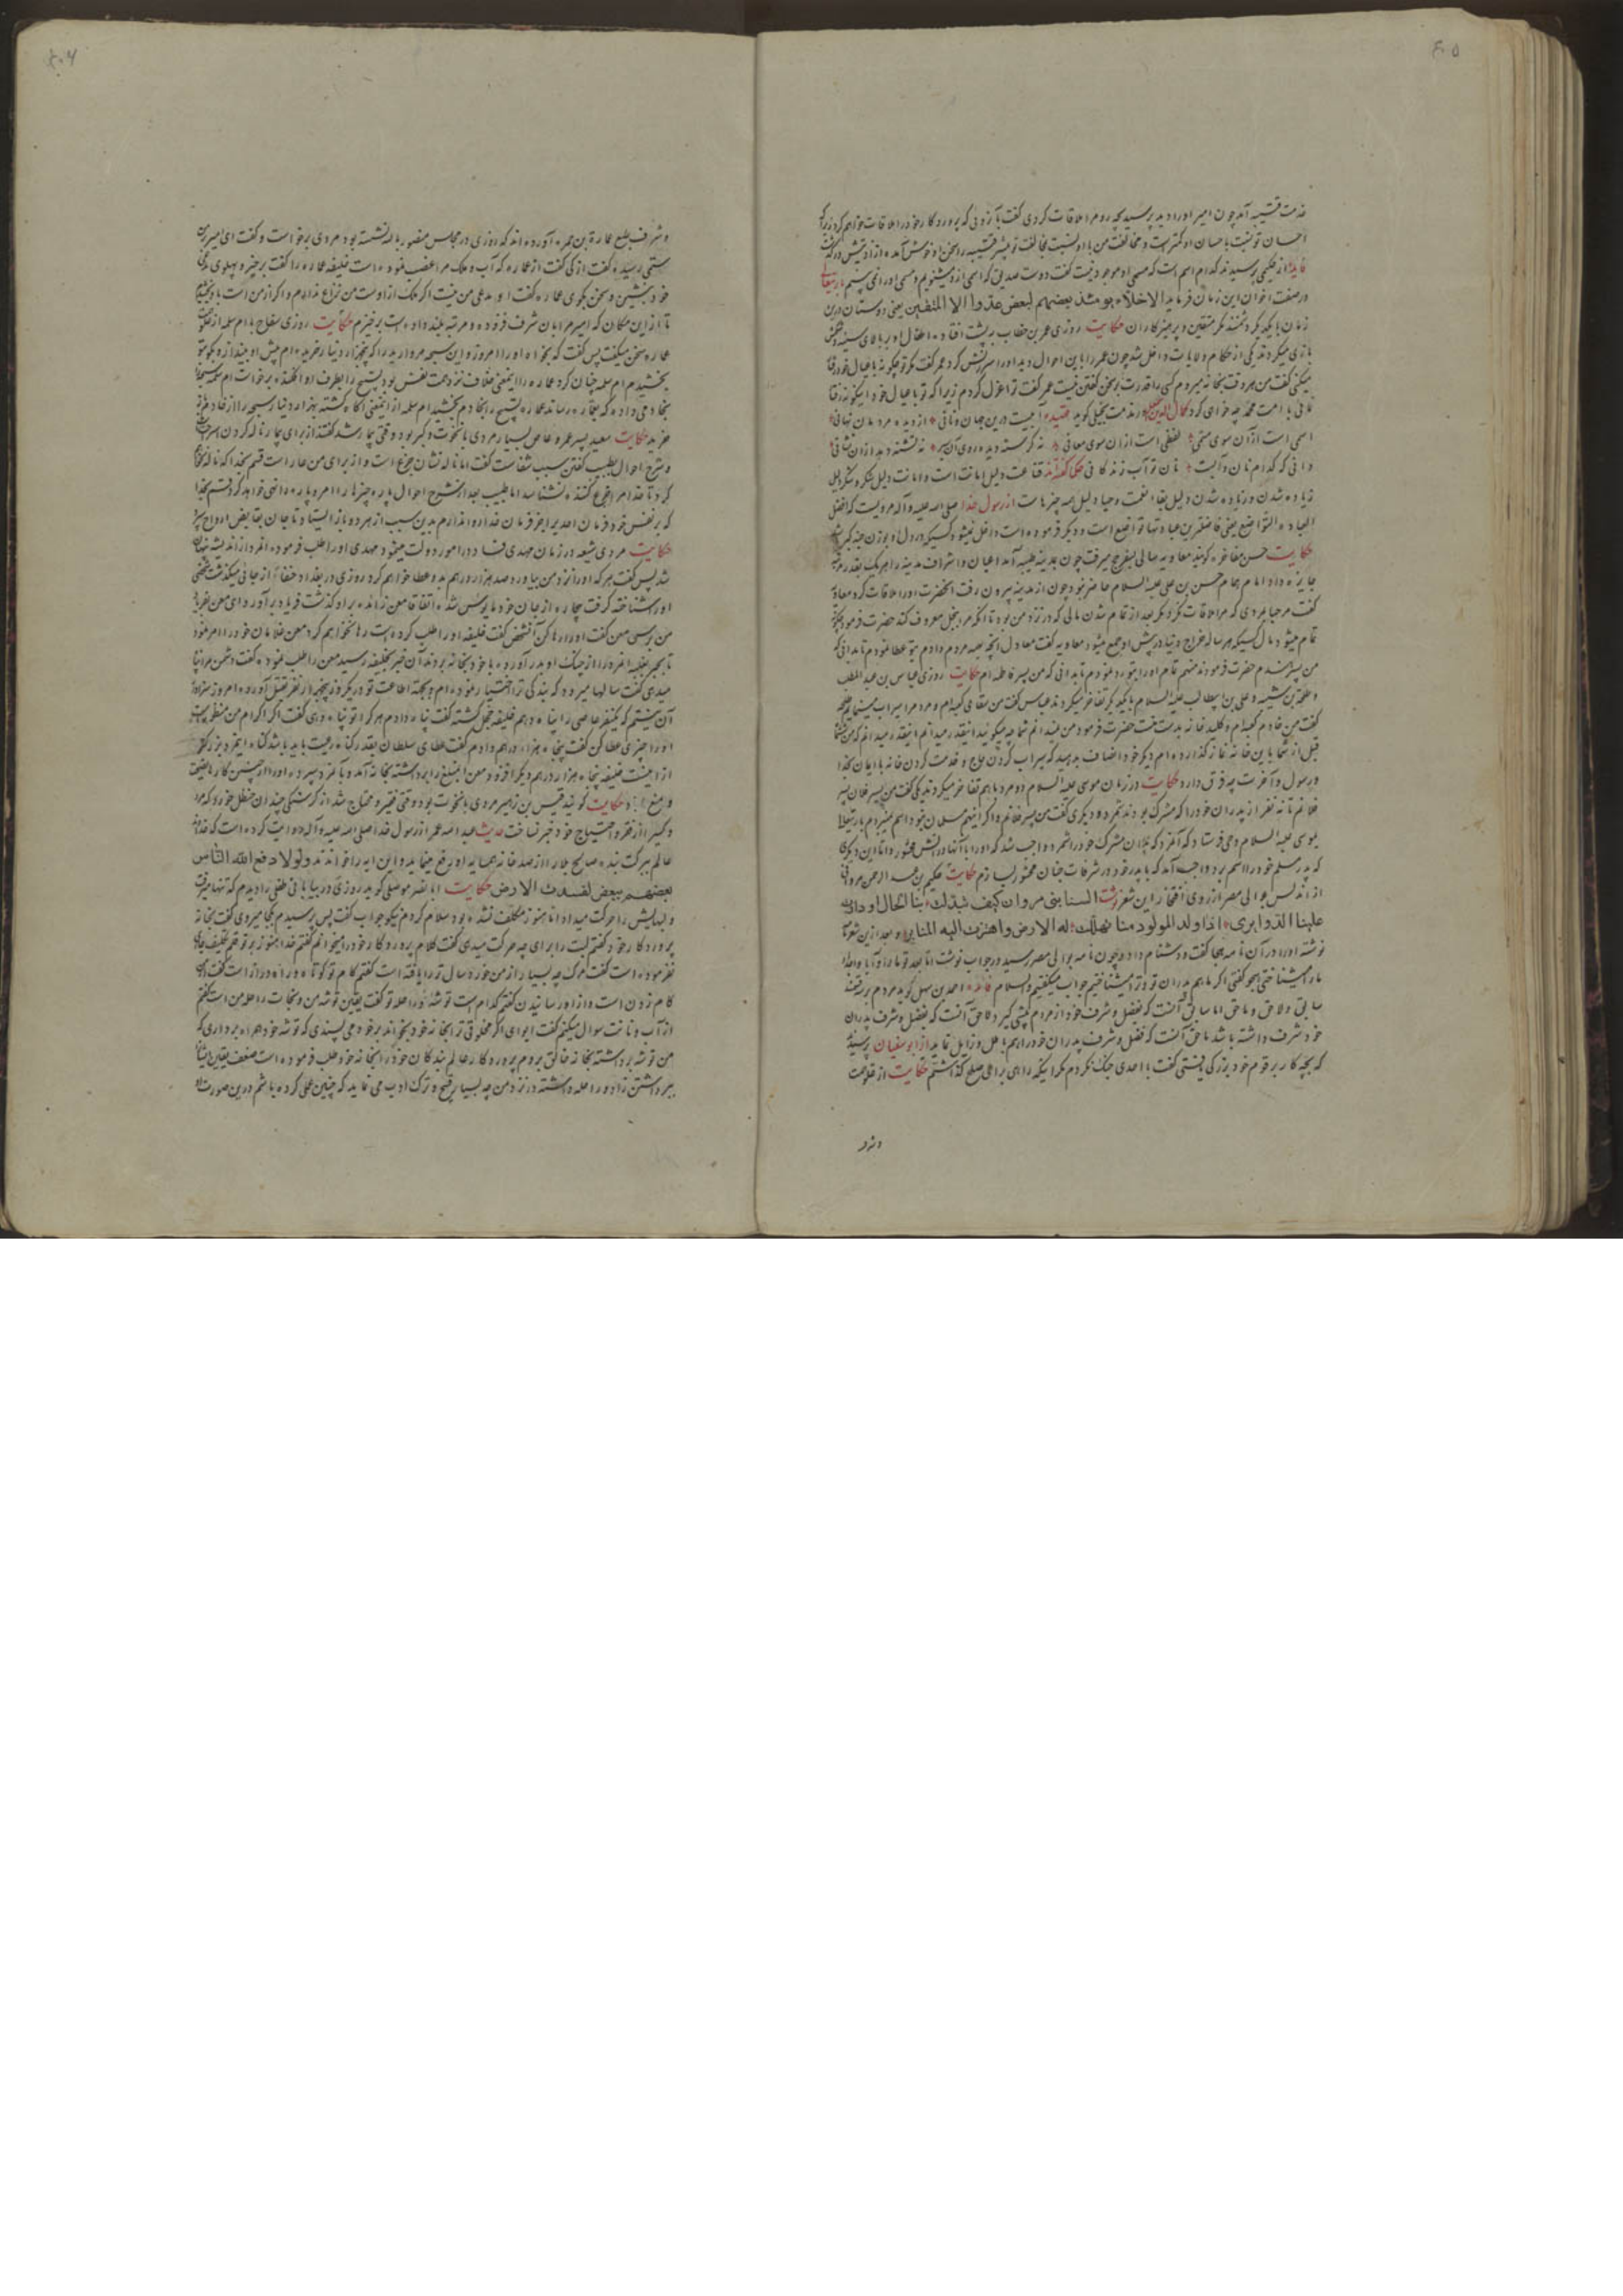 ۴۰۵
خدمت قتیبه آمد چون امیر او را دید پرسید بچه رو مرا ملاقات کردی گفت بآن روئی که پروردگار خود را ملاقات خواهم کرد زیرا که
احسان تو نسبت باحسان او کمتر است و مخالفت من با او نسبت بمخالفت تو بیشتر قتیبه را سخن او خوش آمده آزادیش
از حکیمی پرسیدند کدام اسم است که مسمی او موجود نیست گفت دوست صدیق که اسمی ازو میشنویم و مسمی او را نمی بینیم
در صفت اخوان این زمان فرماید الاخلاء یومئذ بعضهم لبعض عدو الا المتقین یعنی دوستان درین
زمان با یکدیگر دشمنند مگر متقین و پرهیزکاران حکایت روزی عمر بن خطاب به پشت افتاده اطفال او بر بالای سینه
بازی میکردند یکی از حکام ولایات داخل شد چون عمر را باین احوال دید او را سرزنش کرد عمر گفت مگر تو چگونه با عیال خود رفتار
میکنی گفت من هر وقت بخانه میروم کسی را قدرت بر سخن گفتن نیست عمر گفت ترا عزل کردم زیرا که تو با عیال خود اینگونه رفتار
با امت محمد چه خواهی کرد در مذمت بخیلی گوید
اسمی است از آن سوی مسمی لفظی است از ان سوی معانی
قناعت دلیل امانت است و امانت دلیل شکر و شکر دلیل
زیاده شدن و زیاده شدن دلیل بقاء نعمت و حیا دلیل همه چیزهاست از رسول خدا صلی الله علیه و آله مرویست که افضل
العبادة التواضع یعنی فاضلترین عبادتها تواضع است و دیگر فرموده است داخل نمیشود
حکایت معاویه سالی بسفر حج میرفت چون بمدینه طیبه آمد اعیان و اشراف مدینه را هر یک بقدر
جایزه داد امام همام حسن بن علی علیه السلام حاضر نبود چون از مدینه بیرون رفت آنحضرت او را ملاقات کرد معاویه
گفت مرحبا بمردی که مرا ملاقات نکرد مگر بعد از تمام شدن مالی که در نزد من بود تا آنکه مرا ببخل معروف کند حضرت فرمود
تمام میشود مال کسیکه هر ساله خراج دنیا در پیش او جمع میشود معاویه گفت معادل آنچه بهمه مردم دادم بتو عطا نمودم تا بدانی که
من پسر هندم حضرت فرمودند منهم تمام او را بتو رد نمودم تا بدانی که من پسر فاطمه ام حکایت روزی عباس بن عبد المطلب
و طلحه بن شیبه و علی بن ابیطالب علیه السلام با یکدیگر تفاخر میکردند عباس گفت من سقای کعبه ام و مردم را سیراب مینمایم طلحه
گفت من خادم کعبه ام و کلید خانه بدست منست حضرت فرمود من نمیدانم شما چه میگوئید اینقدر میدانم که من
قبل از شما باین خانه نماز گذارده ام دیگر خود انصاف بدهید که سیراب کردن حاج و خدمت کردن خانه با ایمان بخدا
و رسول و آخرت چه فرق دارد حکایت در زمان موسی علیه السلام دو مرد با هم تفاخر میکردند یکی گفت من پسر فلان پسر
فلانم تا نه نفر از پدران خود را که مشرک بودند شمرده و دیگری گفت من پسر فلانم و اگر اینهم مسلمان نبود اسم نمیبردم
بموسی علیه السلام وحی فرستاد که آنمرد که پدران مشرک خود را شمرد واجب شد که او را با آنها در آتش محشور دانم این دیگری
که پدر مسلم خود را اسم برد واجب آمد که با پدر خود در غرفات جنان محشور سازم حکایت حکیم بن عبد الرحمن مروانی
از اندلس بوالی مصر از روی افتخار این شعر نوشت السنا بنی مروان کیف تبدلت بنا الحال او دارت
علینا الدوایری اذا ولد المولود منا تهللت له الارض واهتزت الیه المنابر و بعد ازین شعرها
نوشته او را در آن نامه هجا گفت و دشنام داد و چون نامه بوالی مصر رسید در جواب نوشت اما بعد تو ما را و آباء و اجداد
ما را میشناختی هجو گفتی اگر ما هم پدران تو را میشناختیم جواب میگفتیم والسلام فائده احمد بن سهل گوید مردم بر سه قسمند
سابق و لاحق و ماحق اما سابق آنست که بفضل و شرف خود از مردم پیشی گیرد لاحق آنست که بفضل و شرف پدران
خود شرف داشته باشد ماحق آنست که فضل و شرف پدران خود را هم باطل و زایل نماید از ابو سفیان پرسیدند
که بچه کار بر قوم خود بزرگی یافتی گفت با احدی جنگ نکردم مگر اینکه راهی برای صلح گذاشتم حکایت از علو همت
و شرف
۴۰۶
و شرف طبع عمارة بن حمزه آورده اند که روزی در مجلس منصور بالله نشسته بود مردی برخواست و گفت ای امیر بمن
ستمی رسیده گفت از کی گفت از عماره که آب و ملک مرا غصب نموده است خلیفه عماره را گفت برخیز و پهلوی مدعی
خود بنشین و سخن بگوی عماره گفت او مدعی من نیست اگر ملک از اوست من نزاع ندارم و اگر از من است باو بخشیدم
تا از این مکان که امیر مرا بآن شرف فزوده و مرتبه بلند داده است برخیزم حکایت روزی سفاح با ام سلمه از علو همت
عماره سخن میگفت پس گفت که بخواه او را امروز و این سبحه مروارید را که پنجهزار دینار خریده ام پیش او بینداز و بگو بتو
بخشیدم ام سلمه چنان کرد عماره را اینمعنی خلاف عزت نفس بود تسبیح را بطرف او افکنده برخواست ام سلمه سبحه را
بخادمی داده که بعماره رساند عماره تسبیح را بخادم بخشید ام سلمه از اینمعنی آگاه گشته بهزار دینار سبحه را از خادم باز
خرید حکایت سعید پسر عمرو عاص بسیار مردی با نخوت و کبر بود وقتی بیمار شد گفتند از برای بیمار ناله کردن
و شرح احوال بطبیب گفتن سبب شفاست گفت اما ناله نشان جزع است و از برای من عار است قسم بخدا که ناله نخواهم
کرد تا خدا مرا جزع کننده نشناسد اما طبیب بعد از شرح احوال پاره چیزها را امر و پاره را نهی خواهد کرد قسم بخدا
که بر نفس خود فرمان احدیرا بجز فرمان خدا روا ندارم بدین سبب از هر دو باز ایستاد تا جان بقابض ارواح سپرد
حکایت مردی شیعه در زمان مهدی فساد در امور دولت مینمود مهدی او را طلب فرموده آنمرد از اندیشه پنهان
شد پس گفت هر که او را نزد من بیاورد صد هزار درهم بدو عطا خواهم کرد روزی در بغداد خفاءً از جائی میگذشت شخصی
او را شناخته گرفت بیچاره از جان خود مأیوس شده اتفاقا معن زائده بر او گذشت فریاد برآورد ای معن بفریاد
من برس معن گفت او را رها کن آنشخص گفت خلیفه او را طلب کرده است رها نخواهم کرد معن غلامان خود را امر نمود
تا بجبر و غلبه آنمرد را از چنگ او بدر آورده با خود بخانه بردند آن خبر بخلیفه رسید معن را طلب نموده گفت دشمن مرا پناه
میدهی گفت سالها میرود که بندگی ترا اختیار نموده ام و بجهة اطاعت تو در یکروز پنجهزار نفر بقتل آورده امروز سزاوار
آن نیستم که یکنفر عاصی را پناه دهم خلیفه خجل گشته گفت پناه دادم هر که را تو پناه دهی گفت اگر اکرام من منظور است
او را چیزی عطا کن گفت پنجاه هزار درهم دادم گفت عطای سلطان بقدر گناه رعیت باید باشد گناه اینمرد بزرگتر
از اینست خلیفه پنجاه هزار درهم دیگر افزود معن آنمبلغ را برداشته بخانه آمد و بآنمرد سپرده او را از چنین کار نصیحت
و منع حکایت گویند قیس بن زهیر مردی با نخوت بود وقتی فقیر و محتاج شد از گرسنگی چندان حنظل خورد که مرد
و کسی را از فقر و احتیاج خود خبر نساخت حدیث عبد الله عمر از رسول خدا صلی الله علیه و آله روایت کرده است که خدای
عالم ببرکت بنده صالح بلا را از صد خانه همسایه او رفع مینماید و این آیه را خواندند ولولا دفع الله الناس
بعضهم ببعض لفسدت الارض حکایت ابا نصر موصلی گوید روزی در بیابانی طفلی را دیدم که تنها میرفت
و لبهایش را حرکت میداد اما هنوز مکلف نشده بود سلام کردم نیکو جواب گفت پس پرسیدم بکجا میروی گفت بخانه
پروردگار خود گفتم لبت را برای چه حرکت میدهی گفت کلام پروردگار خود را میخوانم گفتم خدا هنوز بر تو قلم تکلیف جاری
نفرموده است گفت مرگ چه بسیار از من خورد سال تر را یافته است گفتم گام تو کوتاه و راه دراز است گفت از من
گام زدن است و از او رسانیدن گفتم کدام است توشه و راحله تو گفت یقین توشه من و نجات راحله من است گفتم
از آب و نانت سوال میکنم گفت ایوای اگر مخلوقی ترا بخانه خود بخواند بر خود می پسندی که توشه خود همراه برداری که
من توشه برداشته بخانه خالق بروم پروردگار عالم بندگان خود را بخانه خود طلب فرموده است ضعف یقین ایشان
ببرداشتن زاد و راحله داشته در نزد من چه بسیار قبیح و ترک ادب می نماید که چنین عملی کرده باشم درین صورت